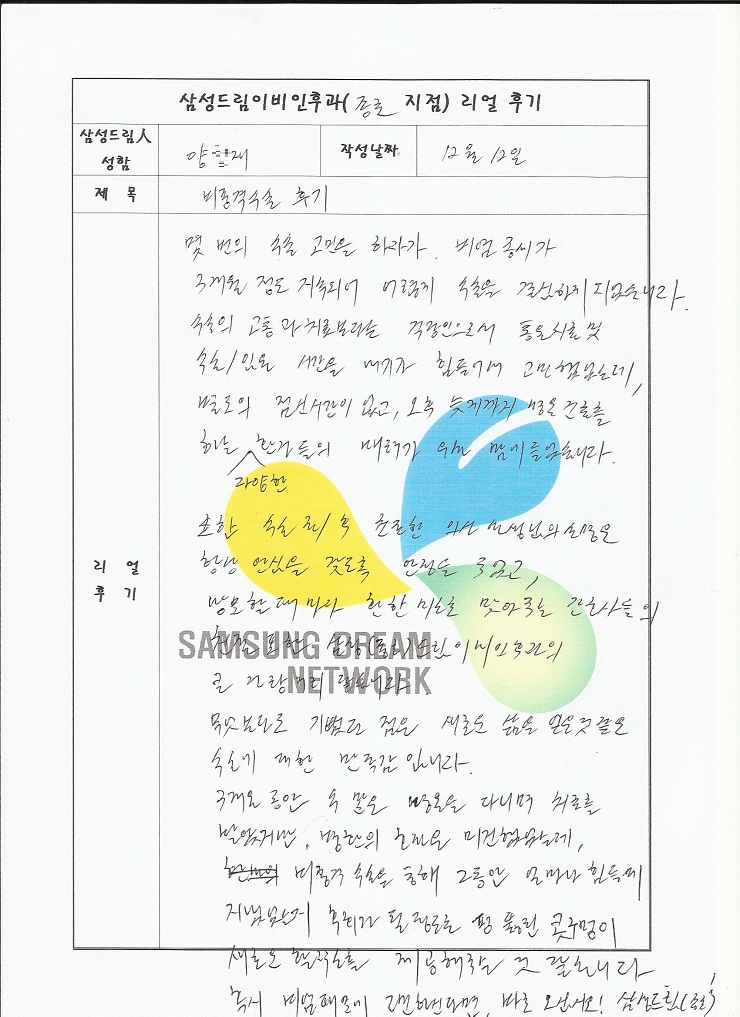 삼성드림이비인후과(종로 지점) 리얼 후기
삼성드림人
성함
양 재
작성날짜
12월 12일
제 목
비중격수술 후기
리 얼
후 기
몇 번의 수술 고민을 하다가. 비염 증세가
3개월 정도 지속되어 어렵게 수술을 결심하게 되었습니다.
수술의 고통과 치료보다는 직장인으로서 통원치료 및
수술/입원 시간을 내기가 힘들어서 고민했었는데,
별도의 점심시간이 없고, 오후 늦게까지 병원 진료를
하는 환자들의 배려가 맘에 들었습니다.
다양한
또한 수술 전/후 의사 선생님의 설명은
항상 안심을 갖도록 안정을 주었고,
방문할 때마다 환한 미소로 맞아주는 간호사들의
친절 또한 삼성드림이비인후과의
큰 자랑거리
SAMSUNG DREAM
NETWORK
무엇보다도 기뻤던 점은 새로운 삶을 얻은 것 같은
수술에 대한 만족감입니다.
3개월 동안 수 많은 병원을 다니며 치료를
받았지만, 미건했었는데,
비중격 수술을 통해 그동안 얼마나 힘들게
지냈었는지 후회가 될 정도로 뻥 뚫린 콧구멍이
새로운 제공해주는 것 같습니다
혹시 비염때문에 고민하신다면, 바로 오십시오! 삼성드림(종로)!